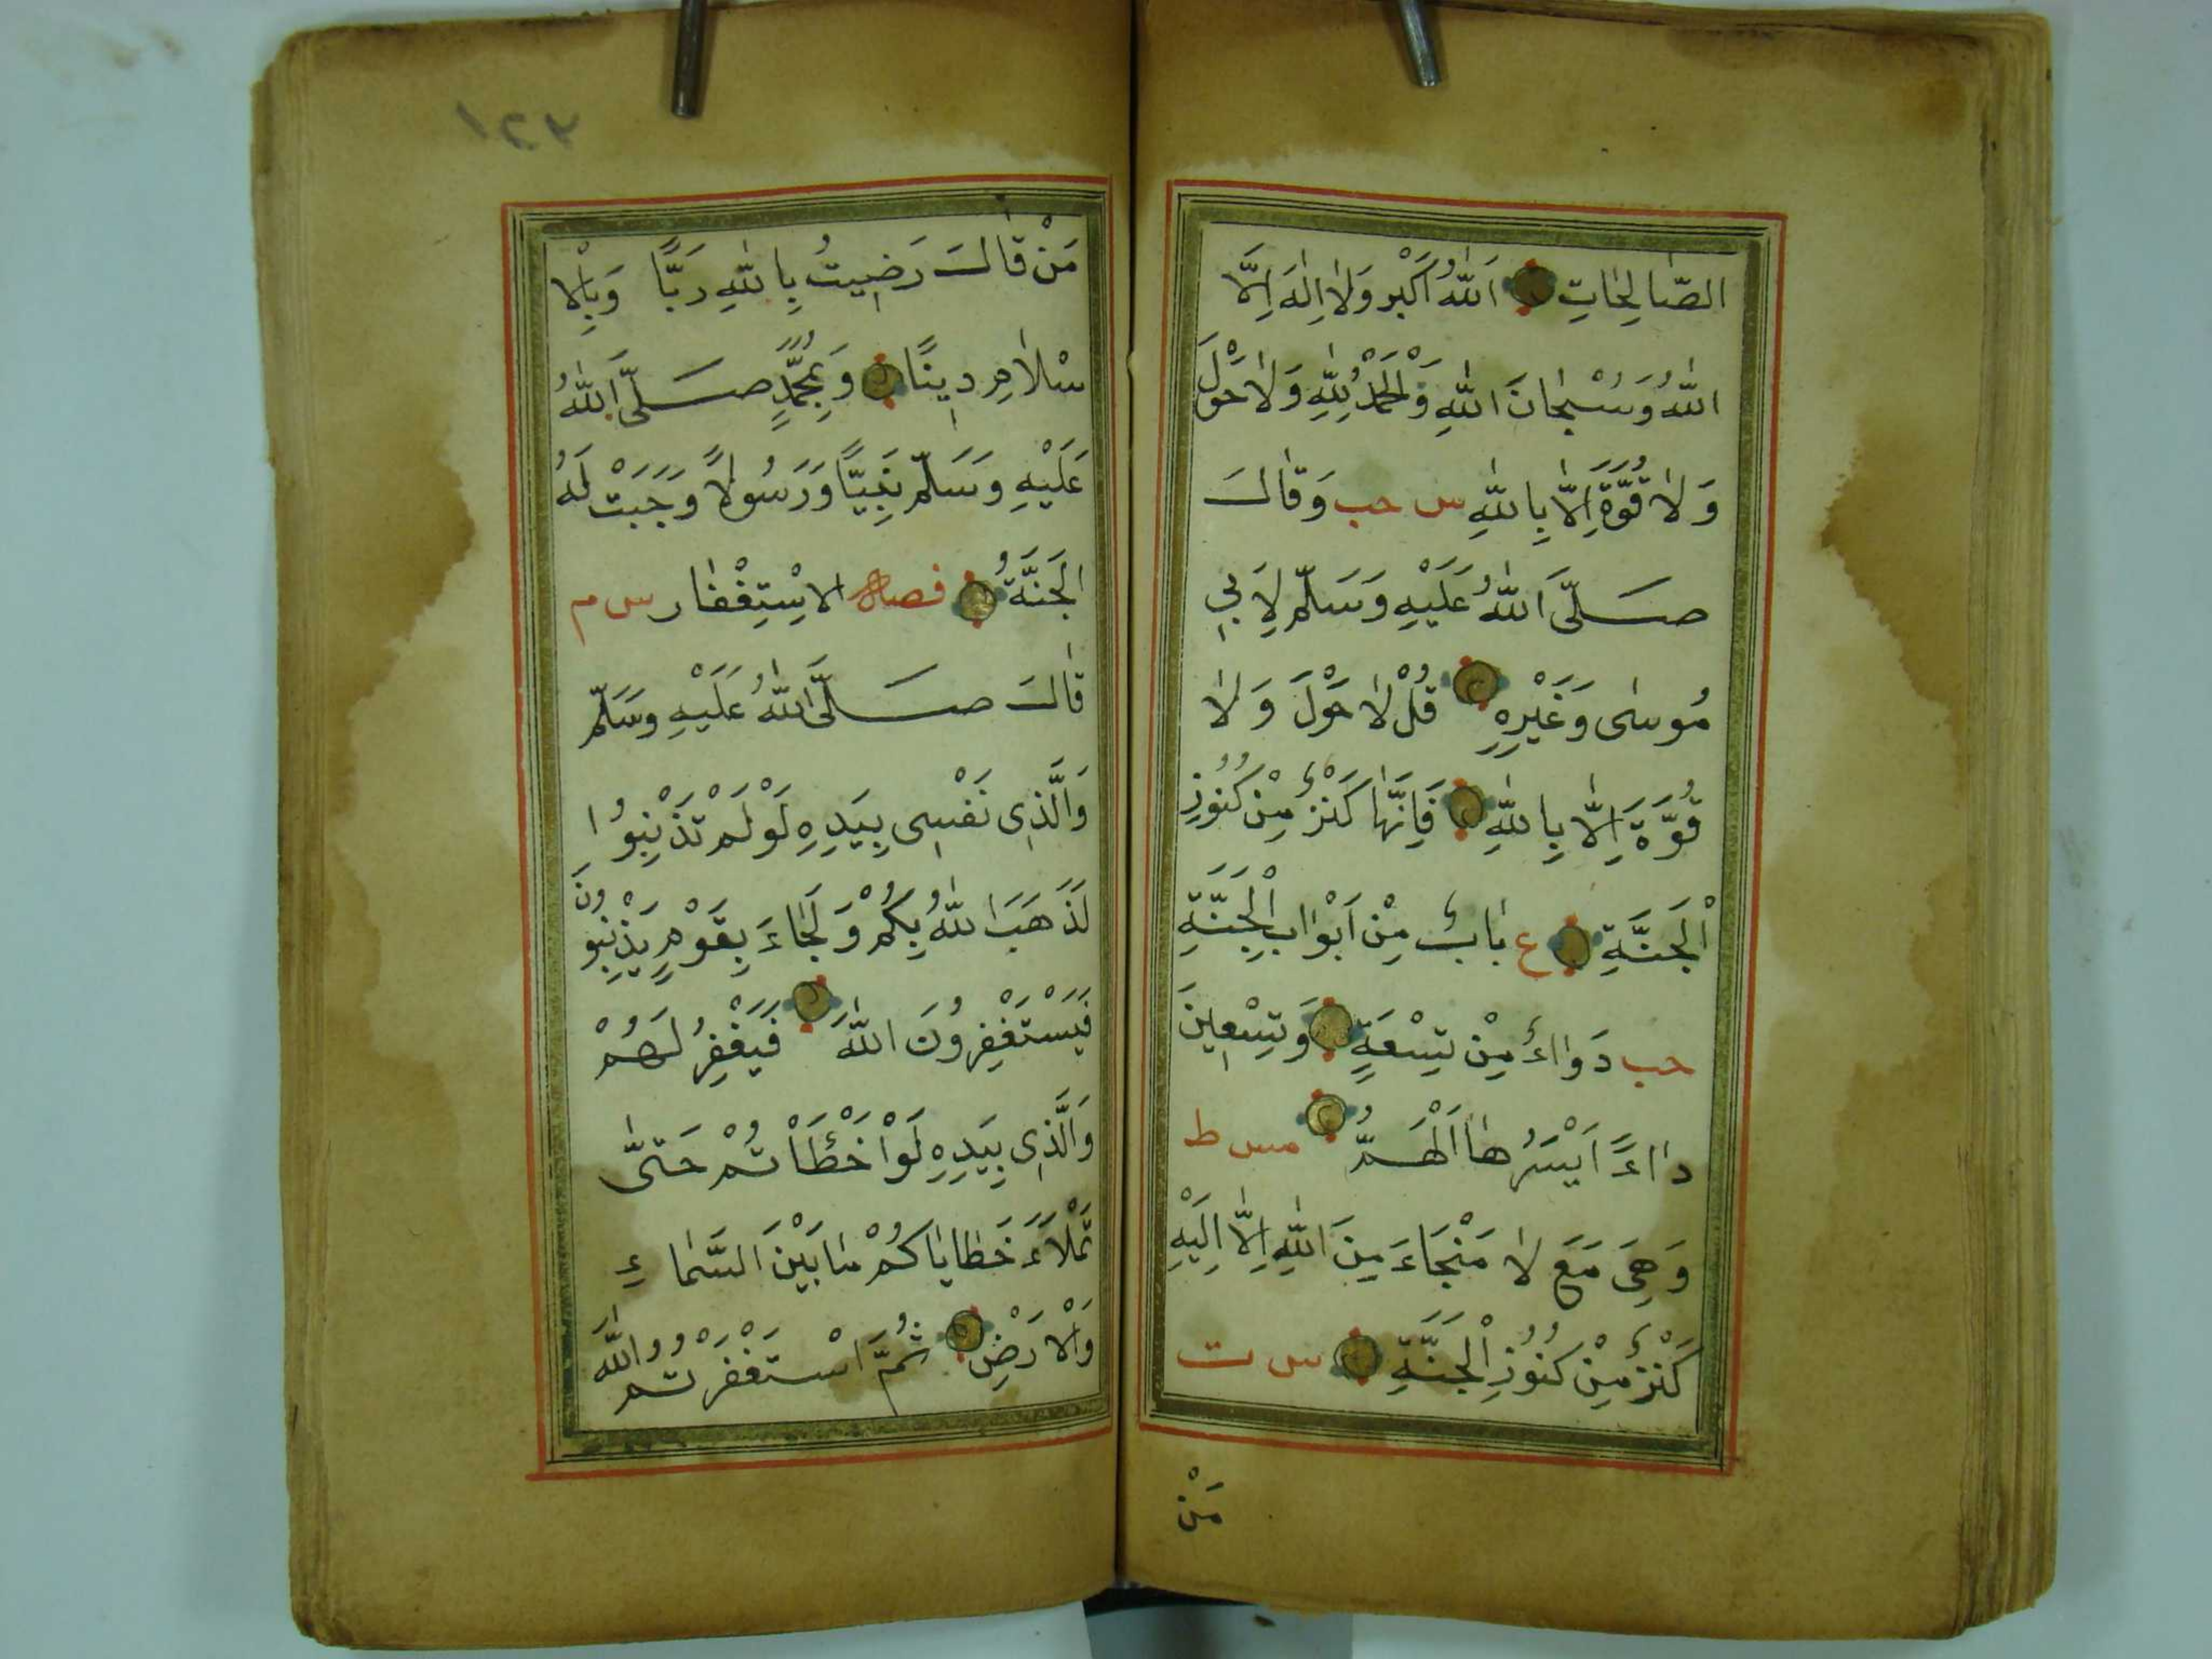 الصّٰالِحٰاتِ اَللّٰهُ اَكْبَر وَلٰا اِلٰهَ اِلَّا
اللّٰهُ وَسُبْحٰانَ اللّٰهِ وَالْحَمْدُ لِلّٰهِ وَلٰا حَوْلَ
وَلٰا قُوَّةَ اِلّٰا بِاللّٰهِ س حب وَقٰالَ
صَلَّى اللّٰهُ عَلَيْهِ وَسَلَّمَ لِاَبِي
مُوسٰى وَغَيْرِهِ قُلْ لٰا حَوْلَ وَلٰا
قُوَّةَ اِلّٰا بِاللّٰهِ فَاِنَّهٰا كَنْزٌ مِنْ كُنُوزِ
الْجَنَّةِ ع بٰابٌ مِنْ اَبْوٰابِ الْجَنَّةِ
حب دَوٰاءٌ مِنْ تِسْعَةٍ وَتِسْعِينَ
دٰاءً اَيْسَرُهٰا اَلْهَمُّ مس ط
وَهِيَ مَعَ لٰا مَنْجَاءَ مِنَ اللّٰهِ اِلّٰا اِلَيْهِ
كَنْزٌ مِنْ كُنُوزِ الْجَنَّةِ س ت
مَنْ
١٢٢
مَنْ قٰالَ رَضِيتُ بِاللّٰهِ رَبًّا وَبِالْا
سْلٰامِ دِينًا وَبِمُحَمَّدٍ صَلَّى اللّٰهُ
عَلَيْهِ وَسَلَّمَ نَبِيًّا وَرَسُولًا وَجَبَتْ لَهُ
الْجَنَّةُ فصل الاِسْتِغْفٰار س م
قٰالَ صَلَّى اللّٰهُ عَلَيْهِ وَسَلَّمَ
وَالَّذِى نَفْسِى بِيَدِهِ لَوْ لَمْ تُذْنِبُوا
لَذَهَبَ اللّٰهُ بِكُمْ وَلَجٰاءَ بِقَوْمٍ يُذْنِبُونَ
فَيَسْتَغْفِرُونَ اللّٰهَ فَيَغْفِرُ لَهُمْ
وَالَّذِى بِيَدِهِ لَوْ اَخْطَأْتُمْ حَتّٰى
تَمْلَاَءَ خَطٰايٰاكُمْ مٰا بَيْنَ السَّمٰاءِ
وَالْاَرْضِ ثُمَّ اسْتَغْفَرْتُمُ اللّٰهَ